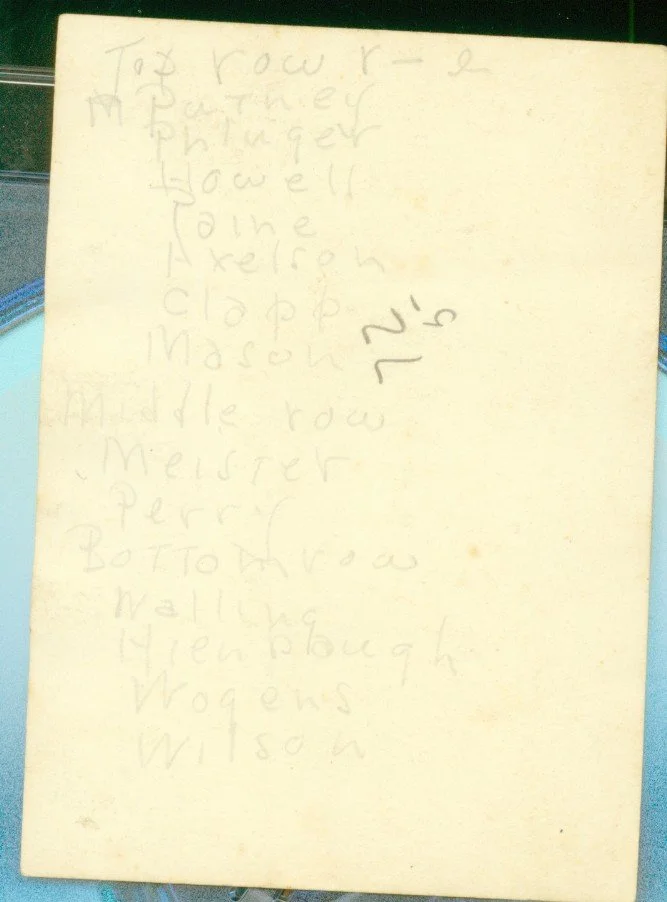 Top row r - l
M Putney
Phluger
Howell
Taine
Axelson
Clapp
Mason
Middle row
Meister
Perry
Bottom row
Walling
Hienbough
Wogens
Wilson